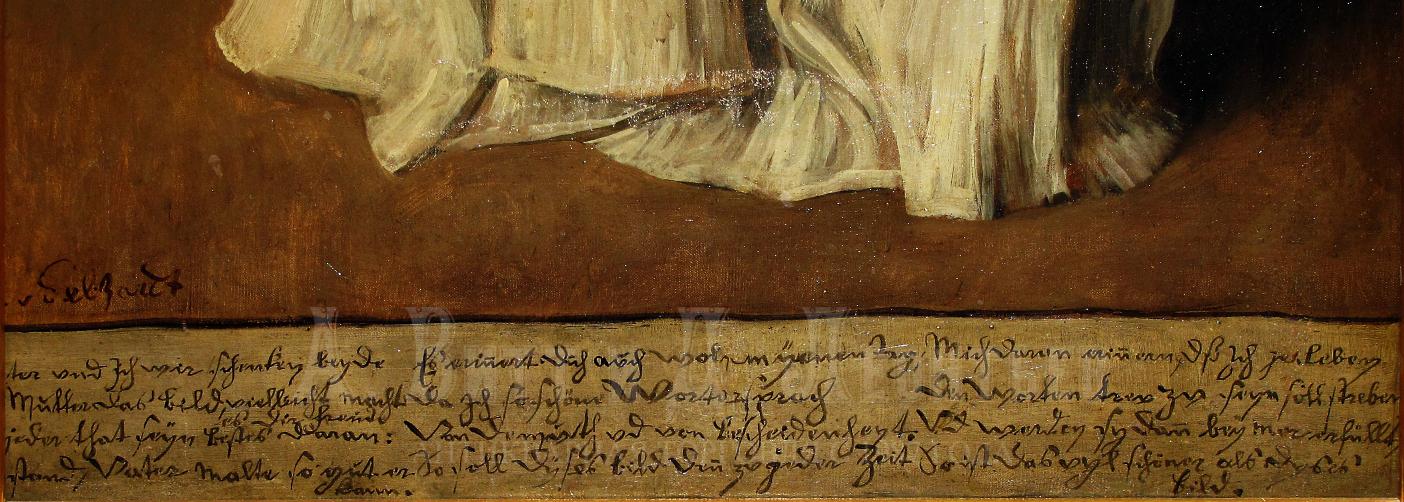 v Gebhardt
ter und Ich wir schenken beyde Es erinnert dich auch wol an yenen Tag, Mich daran erinnern, dß Ich zu leben
Mutter das bild, vielleicht macht Da ich so schöne Worte sprach Den Worten trev zu seyn soll streben
es dir freud
jeder that seyn bestes daran: Von Demuth vd von bescheidenheyt. Vd werden sy dann bey mer erfüllt
stand, Vater malte so gut er So soll dyses bild den zu jeder Zeit So ist das vyl schöner als dyses
kann. bild.